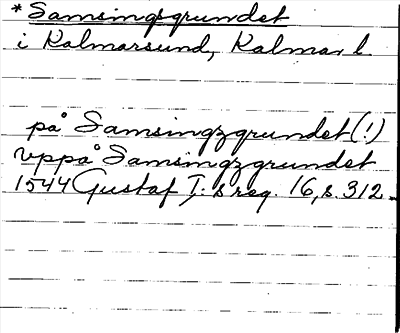 * Samsingsgrundet
i Kalmarsund, Kalmar l.
på Samsingzgrundet (!)
vppå Samsingzgrundet
1544 Gustaf I:s reg. 16, s. 312.